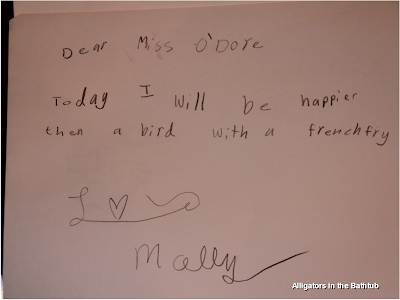 Dear Miss O'Dore
Today I will be happier
then a bird with a frenchfry
L♡
Molly
Alligators in the Bathtub